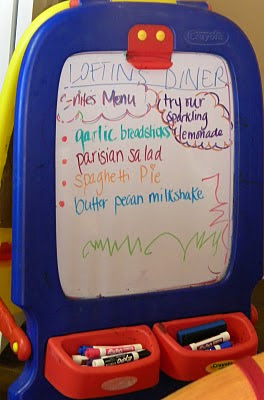 Crayola
LOFTINS DINER
-nites Menu
try our
sparkling
lemonade
garlic breadsticks
parisian salad
spaghetti Pie
butter pecan milkshake
EXPO